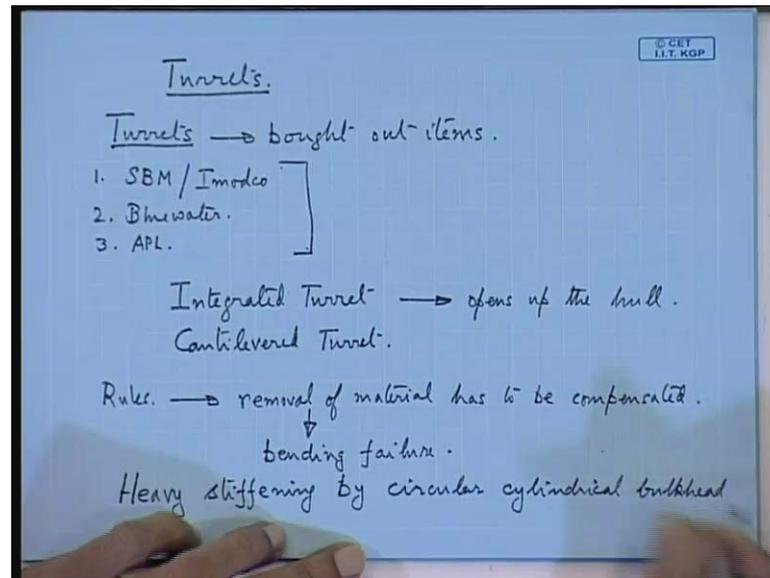 © CET
I.I.T. KGP
Turrets.
Turrets → bought out items.
1. SBM / Imodco
2. Bluewater.
3. APL.
Integrated Turret → opens up the hull.
Cantilevered Turret.
Rules. → removal of material has to be compensated.
↓
bending failure.
Heavy stiffening by circular cylindrical bulkhead